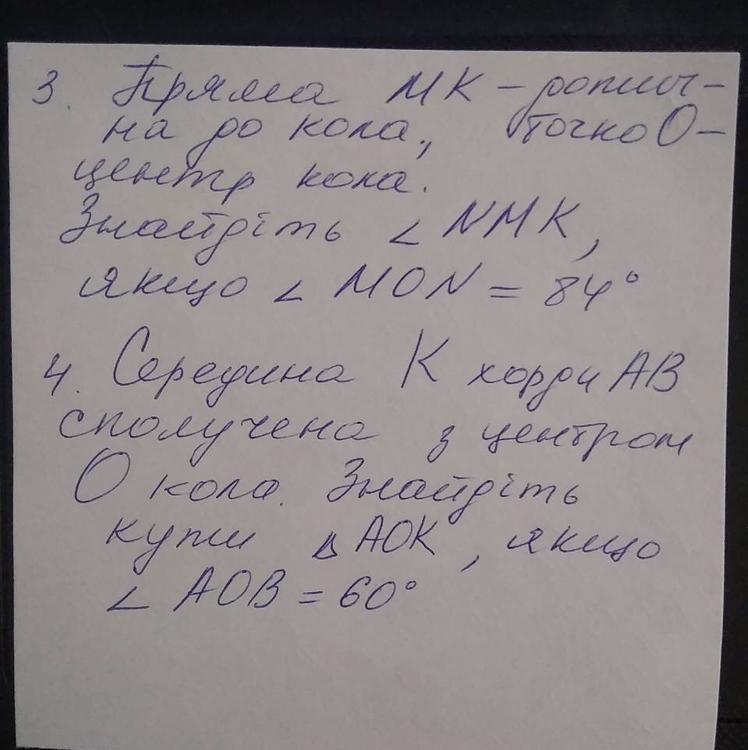 3. Пряма МК – дотич-
на до кола, точка О –
центр кола.
Знайдіть ∠ NMK,
якщо ∠ MON = 84°
4. Середина К хорди АВ
сполучена з центром
О кола. Знайдіть
кути △ АОК, якщо
∠ АОВ = 60°